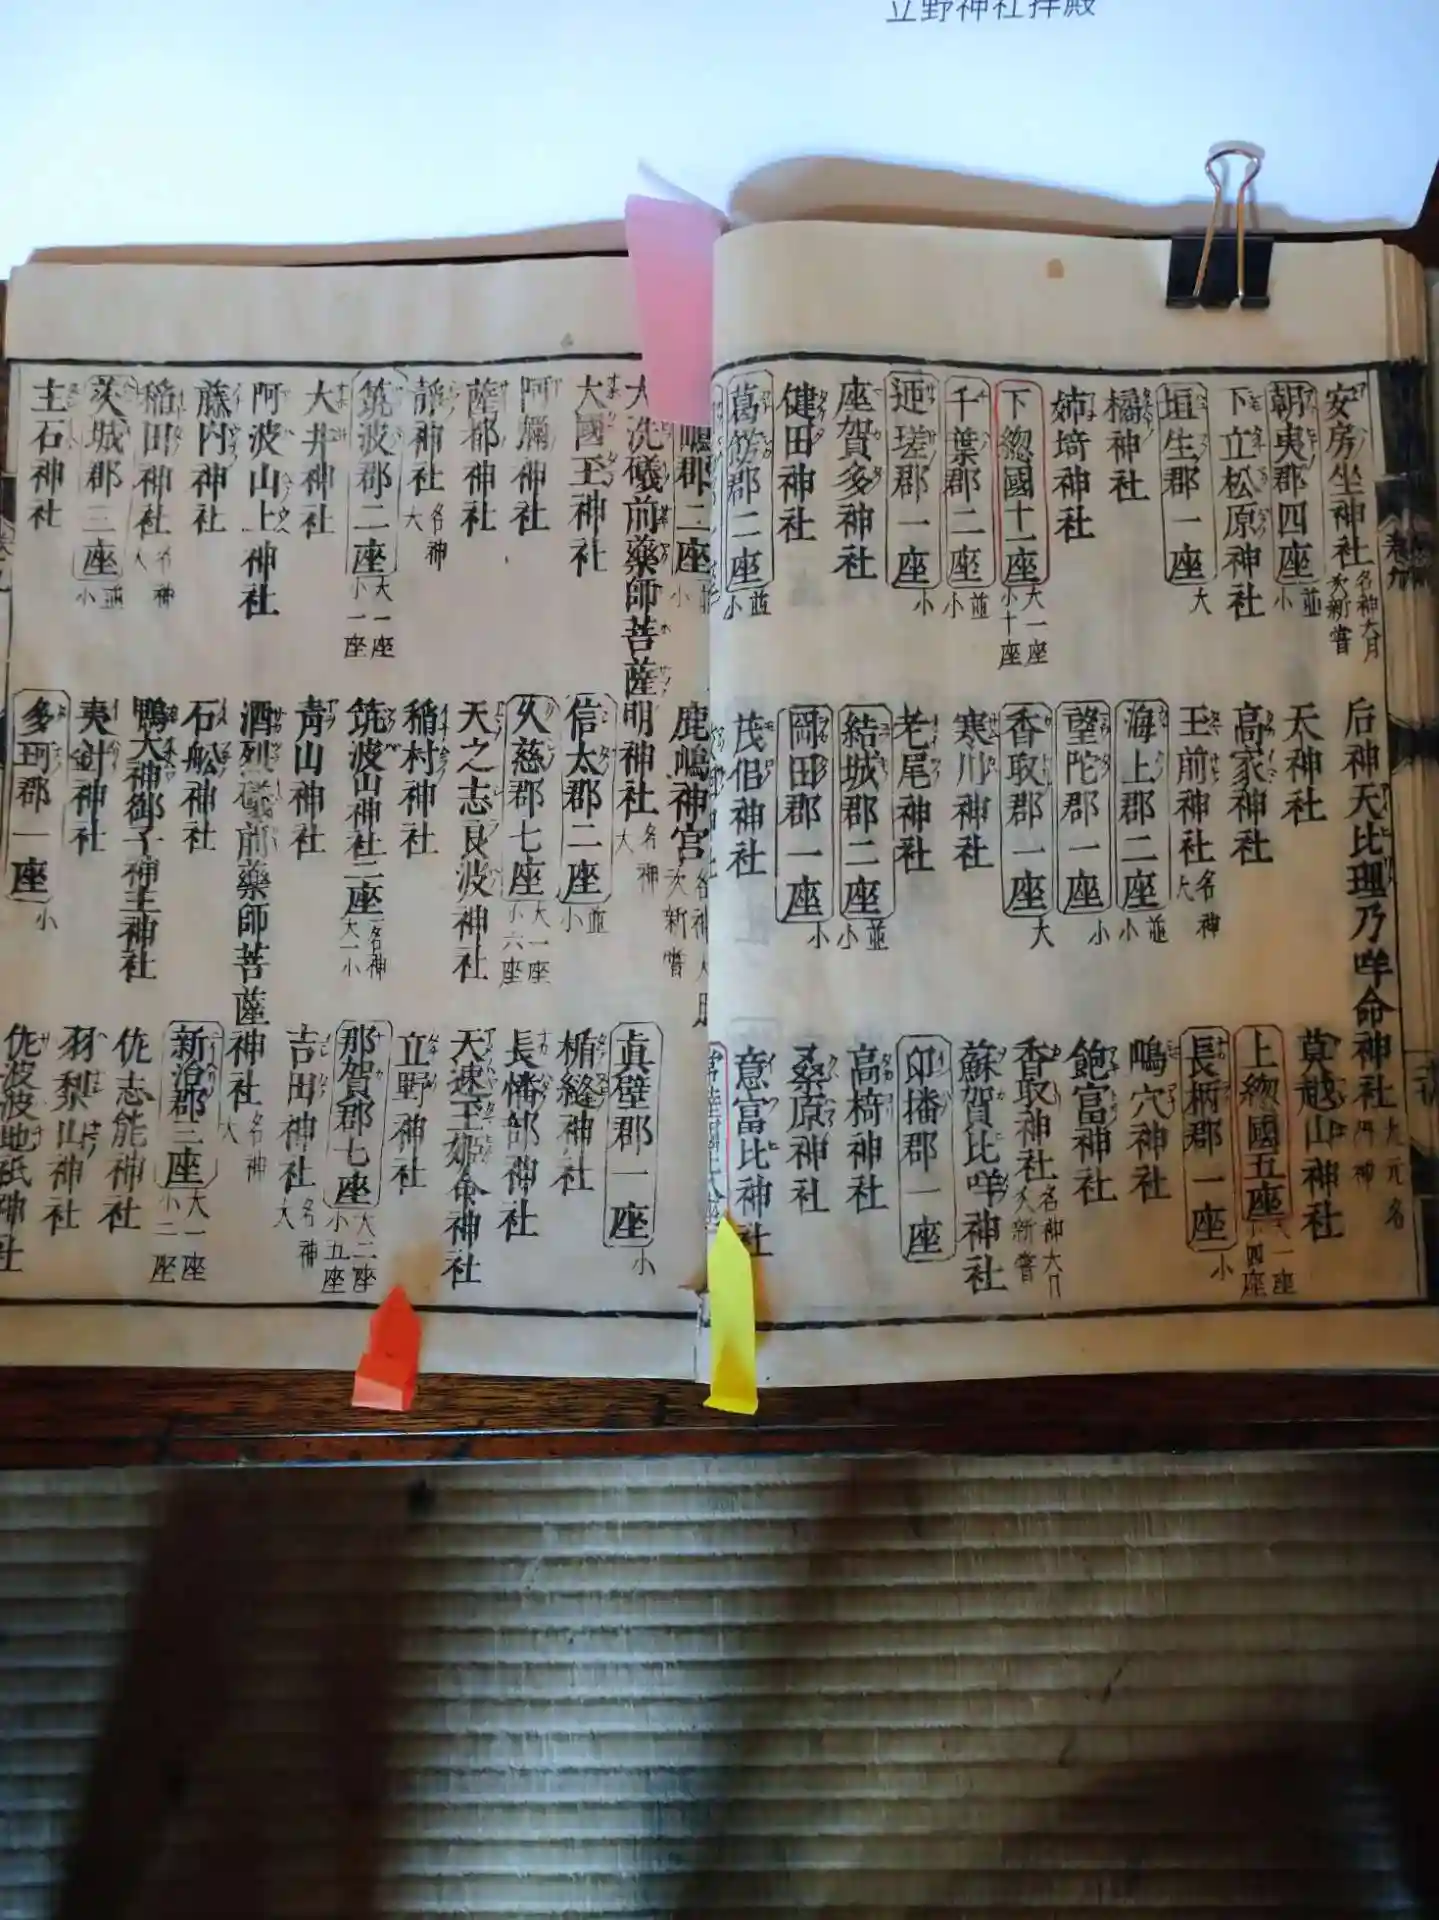 立野神社拝殿
安房坐神社 名神大月次新嘗
后神天比理乃咩命神社 大元名神
朝夷郡四座 並小
天神社
莫越山神社
下立松原神社
高家神社
上総國五座 大一座小四座
埴生郡一座 大
玉前神社 名神大
長柄郡一座 小
橘神社
海上郡二座 並小
嶋穴神社
姉埼神社
望陀郡一座 小
飽富神社
下総國十一座 大一座小十座
香取郡一座 大
香取神社 名神大月次新嘗
千葉郡二座 並小
寒川神社
蘇賀比咩神社
迊瑳郡一座 小
老尾神社
印播郡一座
座賀多神社
結城郡二座 並小
高椅神社
健田神社
岡田郡一座 小
桑原神社
葛餝郡二座 並小
茂侶神社
意富比神社
嶋郡二座 並小
鹿嶋神宮 名神大月次新嘗
眞壁郡一座 小
大洗礒前藥師菩薩明神社 名神大
大國玉神社
信太郡二座 並小
楯縫神社
阿彌神社
久慈郡七座 大一座小六座
長幡部神社
薩都神社
天之志良波神社
天速玉姫命神社
靜神社 名神大
稲村神社
立野神社
筑波郡二座 大一座小一座
筑波山神社二座 一名神大一小
那賀郡七座 大二座小五座
大井神社
青山神社
吉田神社 名神大
阿波山上神社
酒烈礒前藥師菩薩神社 名神大
藤内神社
石舩神社
新治郡三座 大一座小二座
稲田神社 名神大
鴨大神御子神主神社
佐志能神社
茨城郡三座 並小
夷針神社
羽梨山神社
主石神社
多珂郡一座 小
佐波波地祇神社